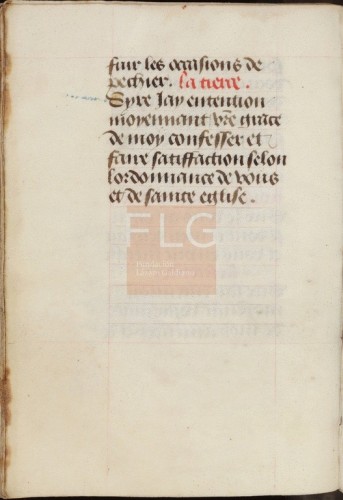 fuir les occasions de
pechier. La tierce.
Syre Jay entention
moyennant vr̃e grace
de moy confesser et
faire satiffaction selon
lordonnance de vous
et de sainte eglise.
FLG